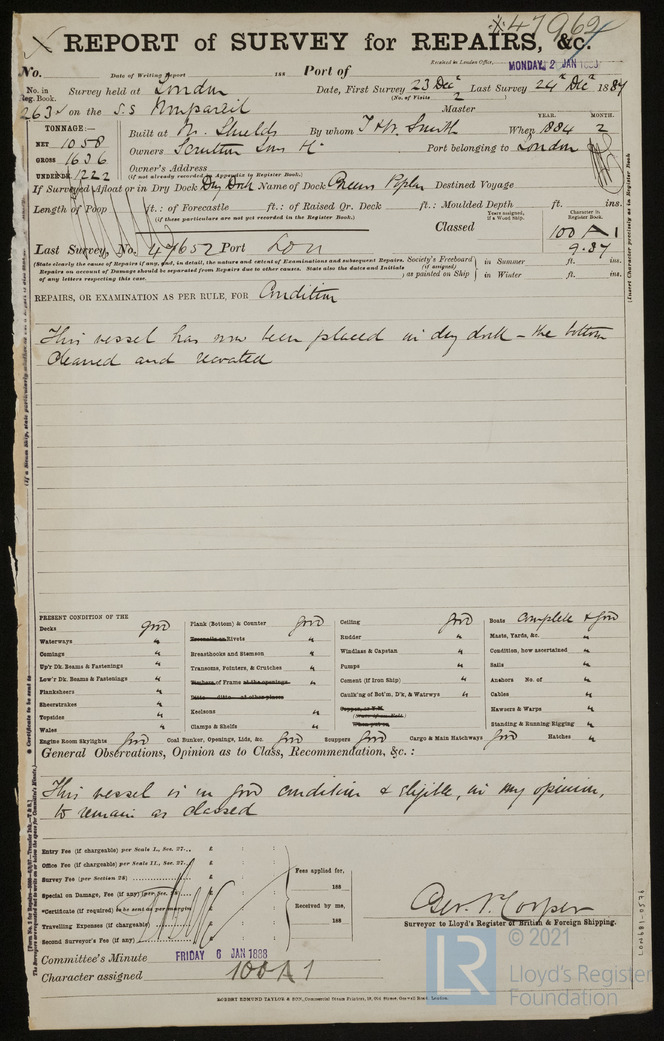 47962
REPORT of SURVEY for REPAIRS, &c.
Received in London Office, MONDAY, 2 JAN 1888
No. Date of Writing Report 188 Port of
No. in Reg. Book. Survey held at London Date, First Survey 23 Decr Last Survey 24th Decr 1887
(No. of Visits 2)
263 on the S.S Nonpareil Master
TONNAGE:— Built at N. Shields By whom T & W. Smith When 1884 YEAR. 2 MONTH.
NET 1058
GROSS 1636 Owners Scrutton Sons & Co Port belonging to London
UNDER DK. 1222 Owner's Address
(if not already recorded in Appendix to Register Book.)
If Surveyed Afloat or in Dry Dock Dry Dock Name of Dock Greens Poplar Destined Voyage
Length of Poop ft.: of Forecastle ft.: of Raised Qr. Deck ft.: Moulded Depth ft. ins.
(if these particulars are not yet recorded in the Register Book.)
Years assigned, if a Wood Ship. Character in Register Book.
Classed 100 A 1
9.87
Last Survey, No. 47652 Port Lon
(State clearly the cause of Repairs if any, and, in detail, the nature and extent of Examinations and subsequent Repairs.
Repairs on account of Damage should be separated from Repairs due to other causes. State also the dates and Initials
of any letters respecting this case.
Society's Freeboard (if assigned) as painted on Ship in Summer ft. ins.
in Winter ft. ins.
REPAIRS, OR EXAMINATION AS PER RULE, FOR Condition
This vessel has now been placed in dry dock – the bottom
cleaned and recoated
PRESENT CONDITION OF THE
Decks good
Waterways "
Comings "
Up'r Dk. Beams & Fastenings "
Low'r Dk. Beams & Fastenings "
Planksheers "
Sheerstrakes "
Topsides "
Wales "
Plank (Bottom) & Counter good
Treenails or Rivets "
Breasthooks and Stemson "
Transoms, Pointers, & Crutches "
Timbers of Frame at the openings "
Ditto ditto at other places
Keelsons "
Clamps & Shelfs "
Ceiling good
Rudder "
Windlass & Capstan "
Pumps "
Cement (if Iron Ship) "
Caulk'ng of Bot'm, D'k, & Watrwys "
Copper, or Y.M.
When put on
Boats complete & good
Masts, Yards, &c. "
Condition, how ascertained "
Sails "
Anchors No. of "
Cables "
Hawsers & Warps "
Standing & Running Rigging "
Engine Room Skylights good Coal Bunker, Openings, Lids, &c. good Scuppers good Cargo & Main Hatchways good Hatches "
General Observations, Opinion as to Class, Recommendation, &c. :
This vessel is in good condition & eligible, in my opinion,
to remain as classed
Entry Fee (if chargeable) per Scale I., Sec. 27... £ : :
Office Fee (if chargeable) per Scale II., Sec. 27... £ : :
Survey Fee (per Section 28) £ : :
Special on Damage, Fee (if any) (per Sec. 28) £ : :
*Certificate (if required) to be sent as per margin £ : :
Travelling Expenses (if chargeable) £ : :
Second Surveyor's Fee (if any) £ : :
Fees applied for,
188
Received by me,
188
Geo. Cooper
Surveyor to Lloyd's Register of British & Foreign Shipping.
Committee's Minute FRIDAY 6 JAN 1888
Character assigned 100 A 1
ROBERT EDMUND TAYLOR & SON, Commercial Steam Printers, 19, Old Street, Goswell Road, London.
(Insert Character precisely as in Register Book
LON681-0576
LR
© 2021
Lloyd's Register
Foundation